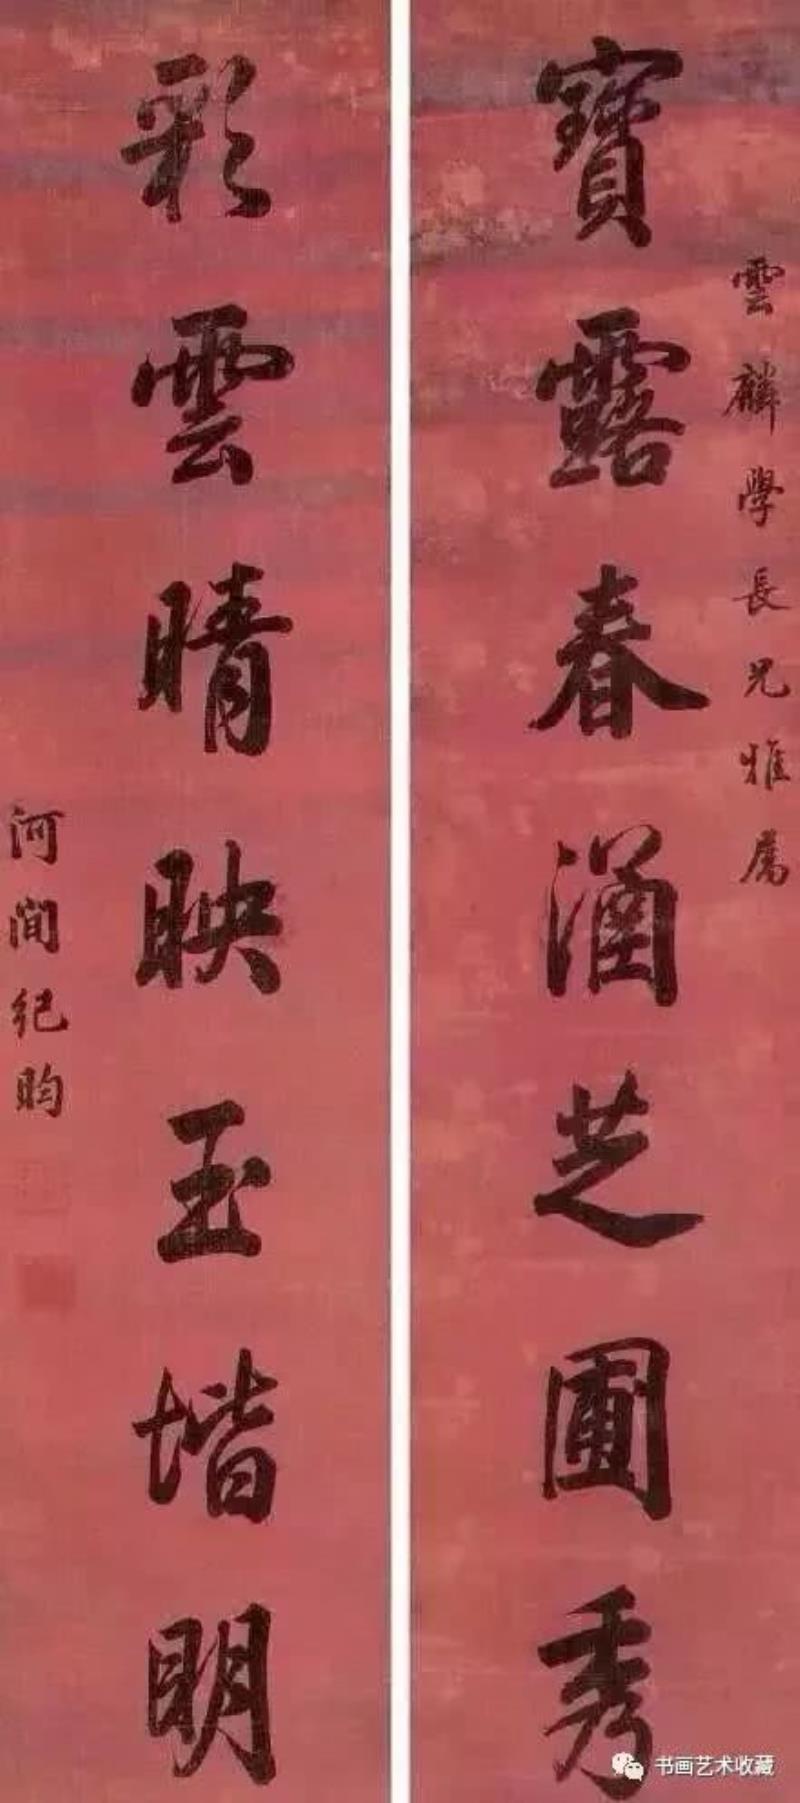 雲麟學長兄雅屬
寶露春涵芝圃秀
彩雲晴映玉堦明
河間紀昀
书画艺术收藏